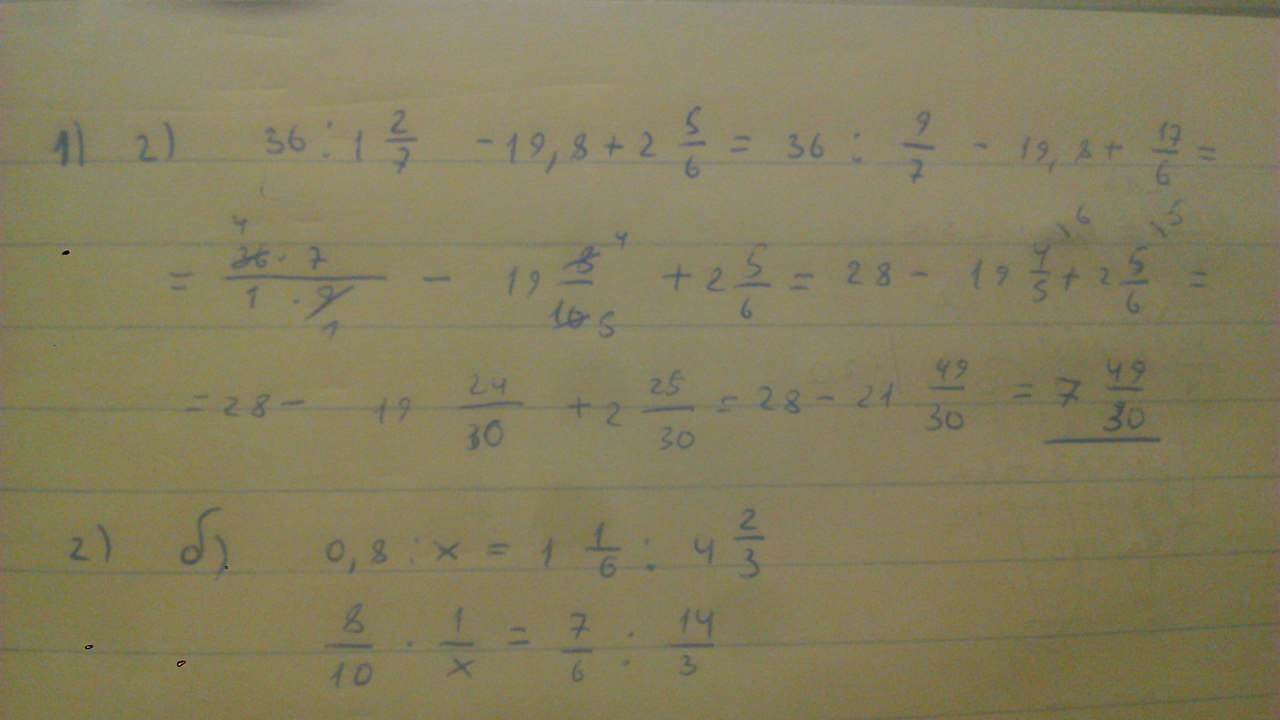 1) г) 36 : 1 2/7 - 19,8 + 2 5/6 = 36 : 9/7 - 19,8 + 17/6 =
= 4 36 · 7 / 1 · 9 1 - 19 8 4 / 10 5 + 2 5/6 = 28 - 19 4/5 \6 + 2 5/6 \5 =
= 28 - 19 24/30 + 2 25/30 = 28 - 21 49/30 = 7 49/30
2) б) 0,8 : x = 1 1/6 : 4 2/3
8/10 · 1/x = 7/6 : 14/3